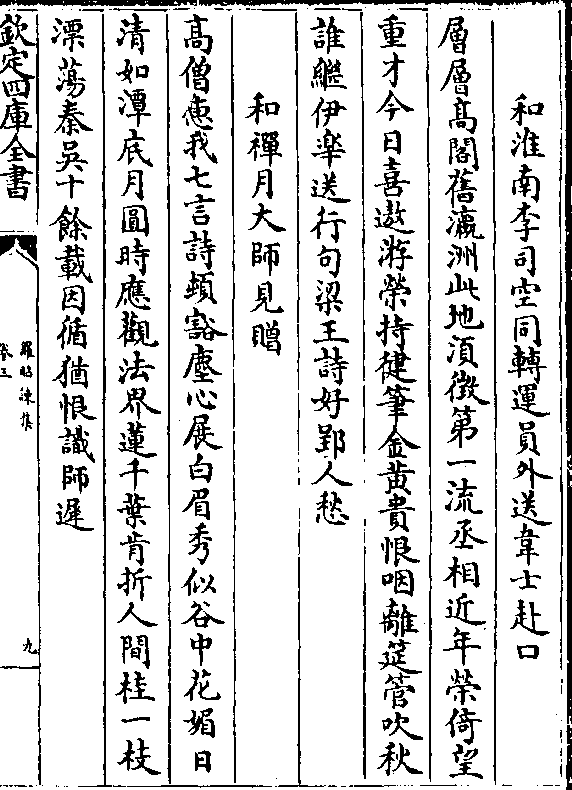 和淮南李司空同轉運員外送韋士赴口
層層髙閣舊瀛洲此地須徴第一流丞相近年榮倚望
重才今日喜遨㳺榮持健筆金黄貴恨咽離筵管吹秋
誰繼伊臯送行句梁王詩好郢人愁
和禪月大師見贈
髙僧惠我七言詩頓豁塵心展白眉秀似谷中花媚日
清如潭底月圓時應觀法界蓮千葉肯折人間桂一枝
漂蕩秦吳十餘載因循猶恨識師遲
欽定四庫全書
羅昭諫集
卷三
九